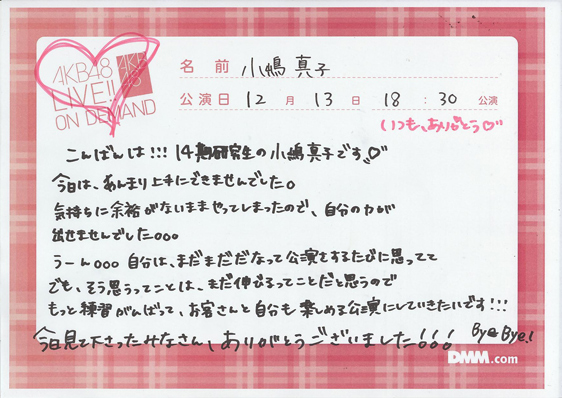 AKB48
LIVE!!
ON DEMAND
AKB
48
名前 小嶋真子
公演日 12月13日 18:30公演
いつも、ありがとう♡
こんばんは!!! 14期研究生の小嶋真子です♡
今日は、あんまり上手にできませんでした。
気持ちに余裕がないままやってしまったので、自分の力が
出せませんでした。。。
うーん。。。自分は、まだまだだなって公演をするたびに思ってて
でも、そう思うってことは、まだ伸びるってことだと思うので
もっと練習がんばって、お客さんと自分も楽しめる公演にしていきたいです!!!
今日見て下さったみなさん、ありがとうございました!!! Bye Bye!
DMM.com